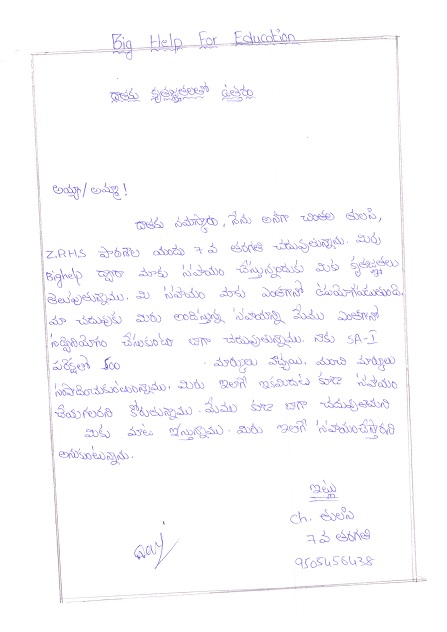 Big Help For Education
దాతకు కృతజ్ఞతలతో ఉత్తరం
అయ్యా/అమ్మా!
దాతకు నమస్కారం, నేను అనగా చింతల తులసి,
Z.P.H.S పొరగొల యందు 7 వ తరగతి చదువుతున్నాను. మీరు
Bighelp ద్వారా మాకు సహాయం చేస్తున్నందుకు మీకు కృతజ్ఞతలు
తెలుపుతున్నాము. మీ సహాయం మాకు ఎంతగానో ఉపయోగపడుతుంది.
మా చదువుకు మీరు అందిస్తున్న సహాయాన్ని మేము ఎంతగానో
సద్వినియోగం చేసుకుంటూ బాగా చదువుతున్నాము. నాకు SA-I
పరీక్షలో 500 మార్కులు వచ్చాయి. మంచి మార్కులు
సంపాదించుకుంటున్నాము. మీరు ఇలాగే ఇకమీదట కూడా సహాయం
చేయగలరని కోరుతున్నాము. మేము కూడా బాగా చదువుతామని
మీకు మాట ఇస్తున్నాము. మీరు ఇలాగే సహాయంచేస్తారని
అనుకుంటున్నాను.
ఇట్లు
Ch. తులసి
7 వ తరగతి
9505456438